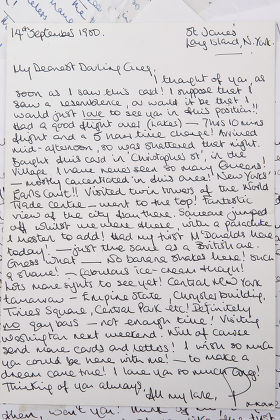 14th September 1980.
St James'
Long Island, N. York.
My Dearest Darling
I thought of you, as
soon as I saw this card! I suppose that I
saw a resemblence, or would it be that I
would just love to see you in this position!!
Had a good flight over (Lakes) — This 10 mins
flight and a 5 hour time change! Arrived
mid-afternoon, so was shattered that night.
Bought this card in 'Christopher St', in the
Village. I have never seen so many Queens!
— mostly concentrated in this area! New York's
Earls Court!! Visited twin towers of the World
Trade Centre — went to the top! Fantastic
view of the city from there. Someone jumped
off whilst we were there, with a parachute
I hasten to add! Had my first McDonald here
today! — just the same as a British one.
Guess what — No banana shakes here! Such
a shame! — fabulous ice-cream though!
Lots more sights to see yet! Central New York
tomorrow — Empire State, Chrysler building,
Times Square, Central Park etc! Definitely
no gay bars — not enough time! Visiting
Washington next weekend. Will of course
send more cards and letters! I wish so much
you could be here with me! — to make a
dream come true! I love you so much
Thinking of you always,
All my love,